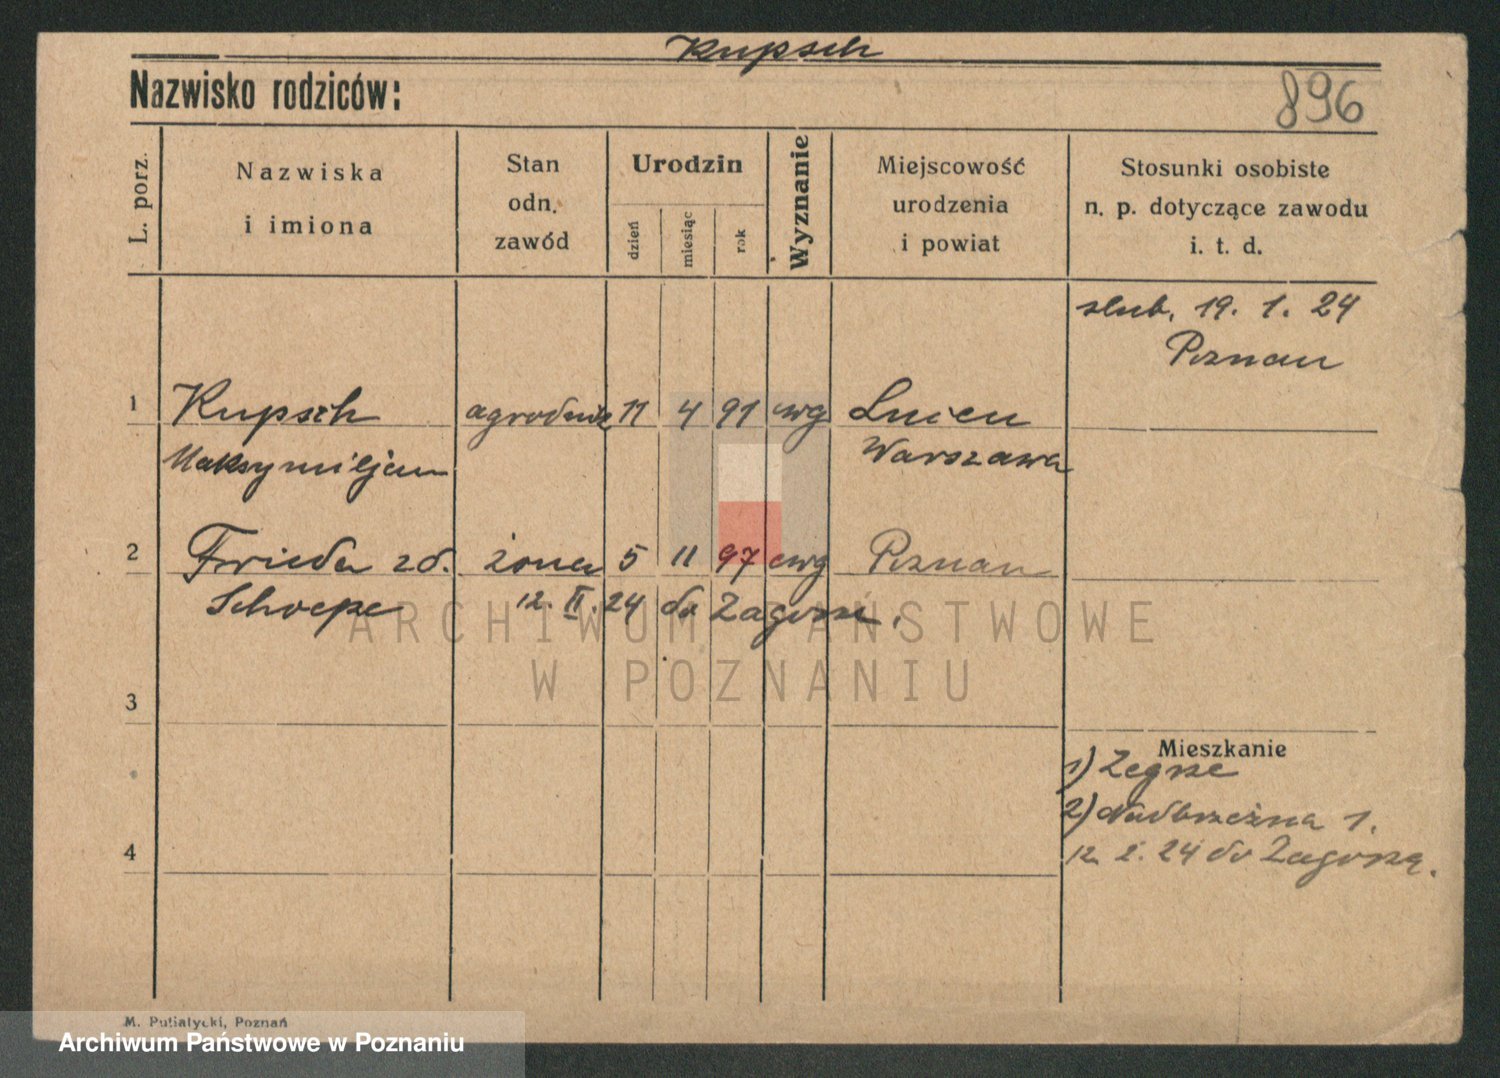 Kupsch
Nazwisko rodziców:
896
L. porz.
Nazwiska
i imiona
Stan
odn.
zawód
Urodzin
dzień
miesiąc
rok
Wyznanie
Miejscowość
urodzenia
i powiat
Stosunki osobiste
n. p. dotyczące zawodu
i. t. d.
slub. 19. 1. 24
Poznan
1 Kupsch agrodnik 11 4 91 ewg
Maksymiljan Warszawa
2 Frieda zd. żona 5 11 97 ewg Poznan
Schoepe 12. II. 24 do
3
Mieszkanie
1) Zegrze
2) Nadbrzeżna 1.
4
12. 2. 24 do
M. Putiatycki, Poznań
ARCHIWUM PAŃSTWOWE
W POZNANIU
Archiwum Państwowe w Poznaniu